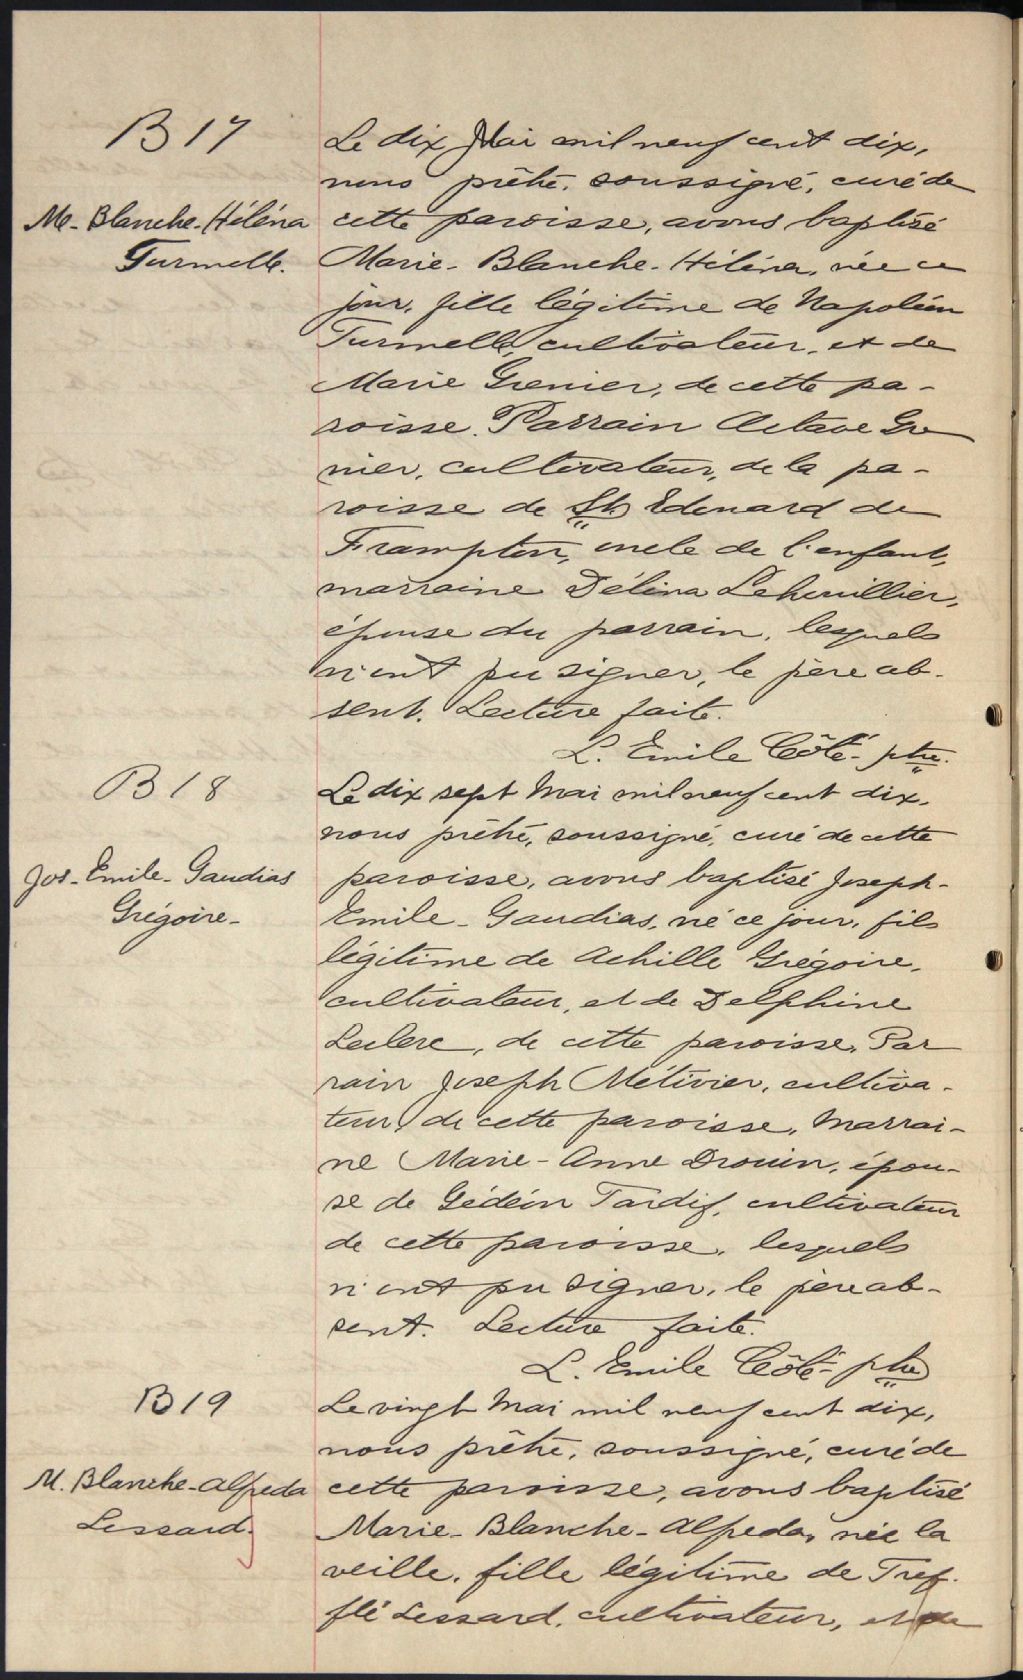 B 17
Me- Blanche-Héléna
Turmelle.
Le dix Mai mil neuf cent dix,
nous prêtre, soussigné, curé de
cette paroisse, avons baptisé
Marie- Blanche- Héléna, née ce
jour, fille légitime de Napoléon
Turmelle, cultivateur, et de
Marie Grenier, de cette pa-
roisse. Parrain Octave Gre
nier, cultivateur, de la pa-
roisse de St Edouard de
Frampton, oncle de l'enfant,
marraine Délina Lehouillier,
épouse du parrain, lesquels
n'ont pu signer, le père ab-
sent. Lecture faite.
L. Emile Côté- ptre.
B 18
Jos- Emile- Gaudias
Grégoire-
Le dix sept Mai mil neuf cent dix,
nous prêtre, soussigné, curé de cette
paroisse, avons baptisé Joseph-
Emile- Gaudias, né ce jour, fils
légitime de Achille Grégoire,
cultivateur, et de Delphine
Leclerc, de cette paroisse. Par
rain Joseph Métivier, cultiva-
teur, de cette paroisse, Marrai-
ne Marie-Anne Drouin, épou-
se de Gédéon Tardif, cultivateur
de cette paroisse, lesquels
n'ont pu signer, le père ab-
sent. Lecture faite.
L. Emile Côté- ptre
B 19
M. Blanche-Alfreda
Lessard.
Le vingt Mai mil neuf cent dix,
nous prêtre, soussigné, curé de
cette paroisse, avons baptisé
Marie- Blanche- Alfreda, née la
veille, fille légitime de Tref-
flé Lessard, cultivateur, et de